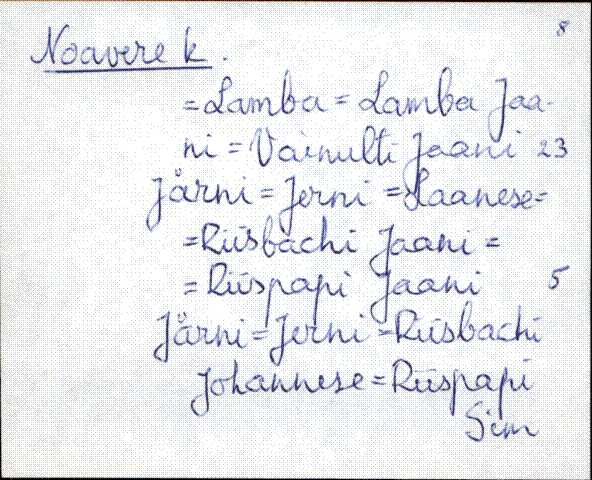 8
Noavere k.
=Lamba= Lamba Jaa-
ni = Vainulti Jaani 23
Jårni = Jerni = Laanese=
=Riisbachi Jaani =
= Riispapi Jaani 5
Jårni = Jerni = Riisbachi
Johannese = Riispapi
Sim